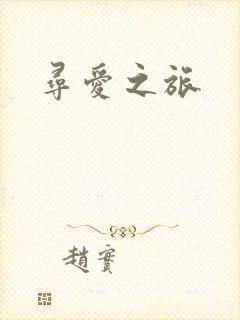 尋愛之旅
趙實